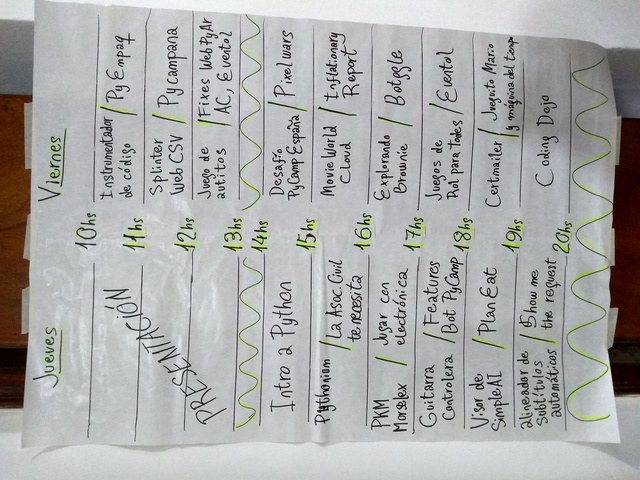 Jueves
PRESENTACIÓN
Intro a Python
Pythonium / La Asoc. Civil
te necesita
PKM
Moselex / Jugar con
electrónica
Guitarra
Controlera / Features
Bot PyCamp
Visor de
SimpleAI / Plan Eat
alineador de
Subtítulos
automáticos / Show me
the request
10hs
11hs
12hs
13hs
14hs
15hs
16hs
17hs
18hs
19hs
20hs
Viernes
Instrumentador
de código / PyEmpaq
Splinter
Web CSV / Pycampana
Juego de
autitos / Fixes WebPyAr
AC, Eventol
Desafío
PyCamp España / Pixelwars
Movie World
Cloud / Inflationary
Report
Explorando
Brownie / Botggle
Juegos de
Rol para todes / Eventol
Certmailer / Jueguito Mario
y máquina del tiempo
Coding Dojo